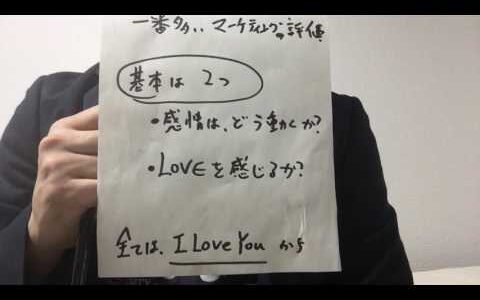 一番多いマーケティングの評価
基本は2つ
・感情は、どう動くか?
・LOVEを感じるか?
全ては、I Love You から